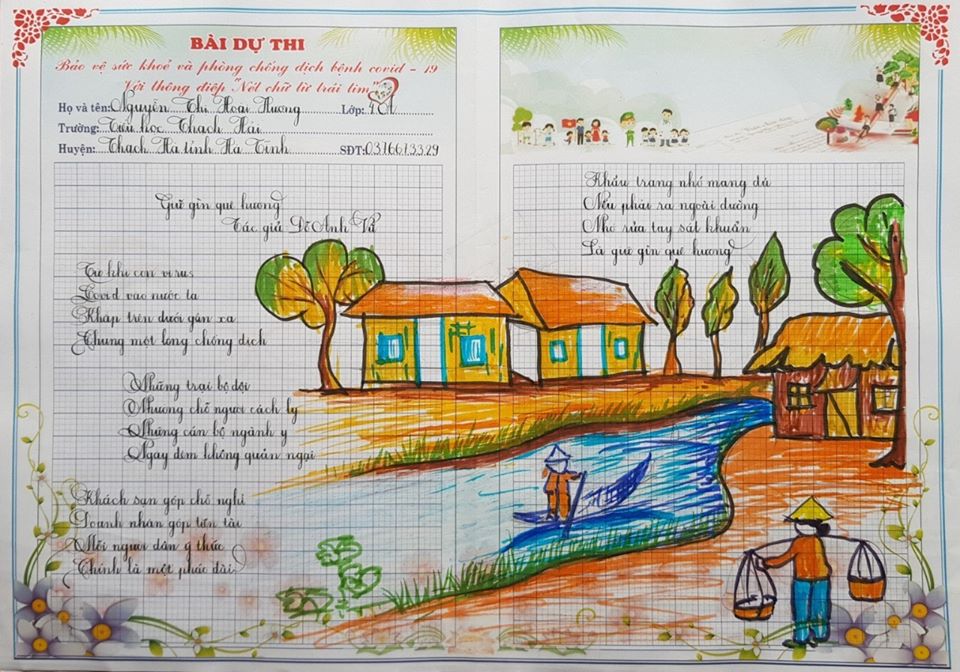 BÀI DỰ THI
Bảo vệ sức khoẻ và phòng chống dịch bệnh covid - 19
Với thông điệp "Nét chữ từ trái tim"
Họ và tên: Nguyễn Thị Hoài Hương Lớp: 4A
Trường: Tiểu học Thạch Hải
Huyện: Thạch Hà tỉnh Hà Tĩnh SĐT: 0376673329
Giữ gìn quê hương
Tác giả Đỗ Anh Vũ
Từ khi con virus
Covid vào nước ta
Khắp trên dưới gần xa
Chung một lòng chống dịch
Những trại bộ đội
Nhường chỗ người cách ly
Những cán bộ ngành y
Ngày đêm không quản ngại
Khách sạn góp chỗ nghỉ
Doanh nhân góp tiền tài
Mỗi người dân ý thức
Chính là một pháo đài
Khẩu trang nhớ mang đủ
Nếu phải ra ngoài đường
Nhớ rửa tay sát khuẩn
Là giữ gìn quê hương